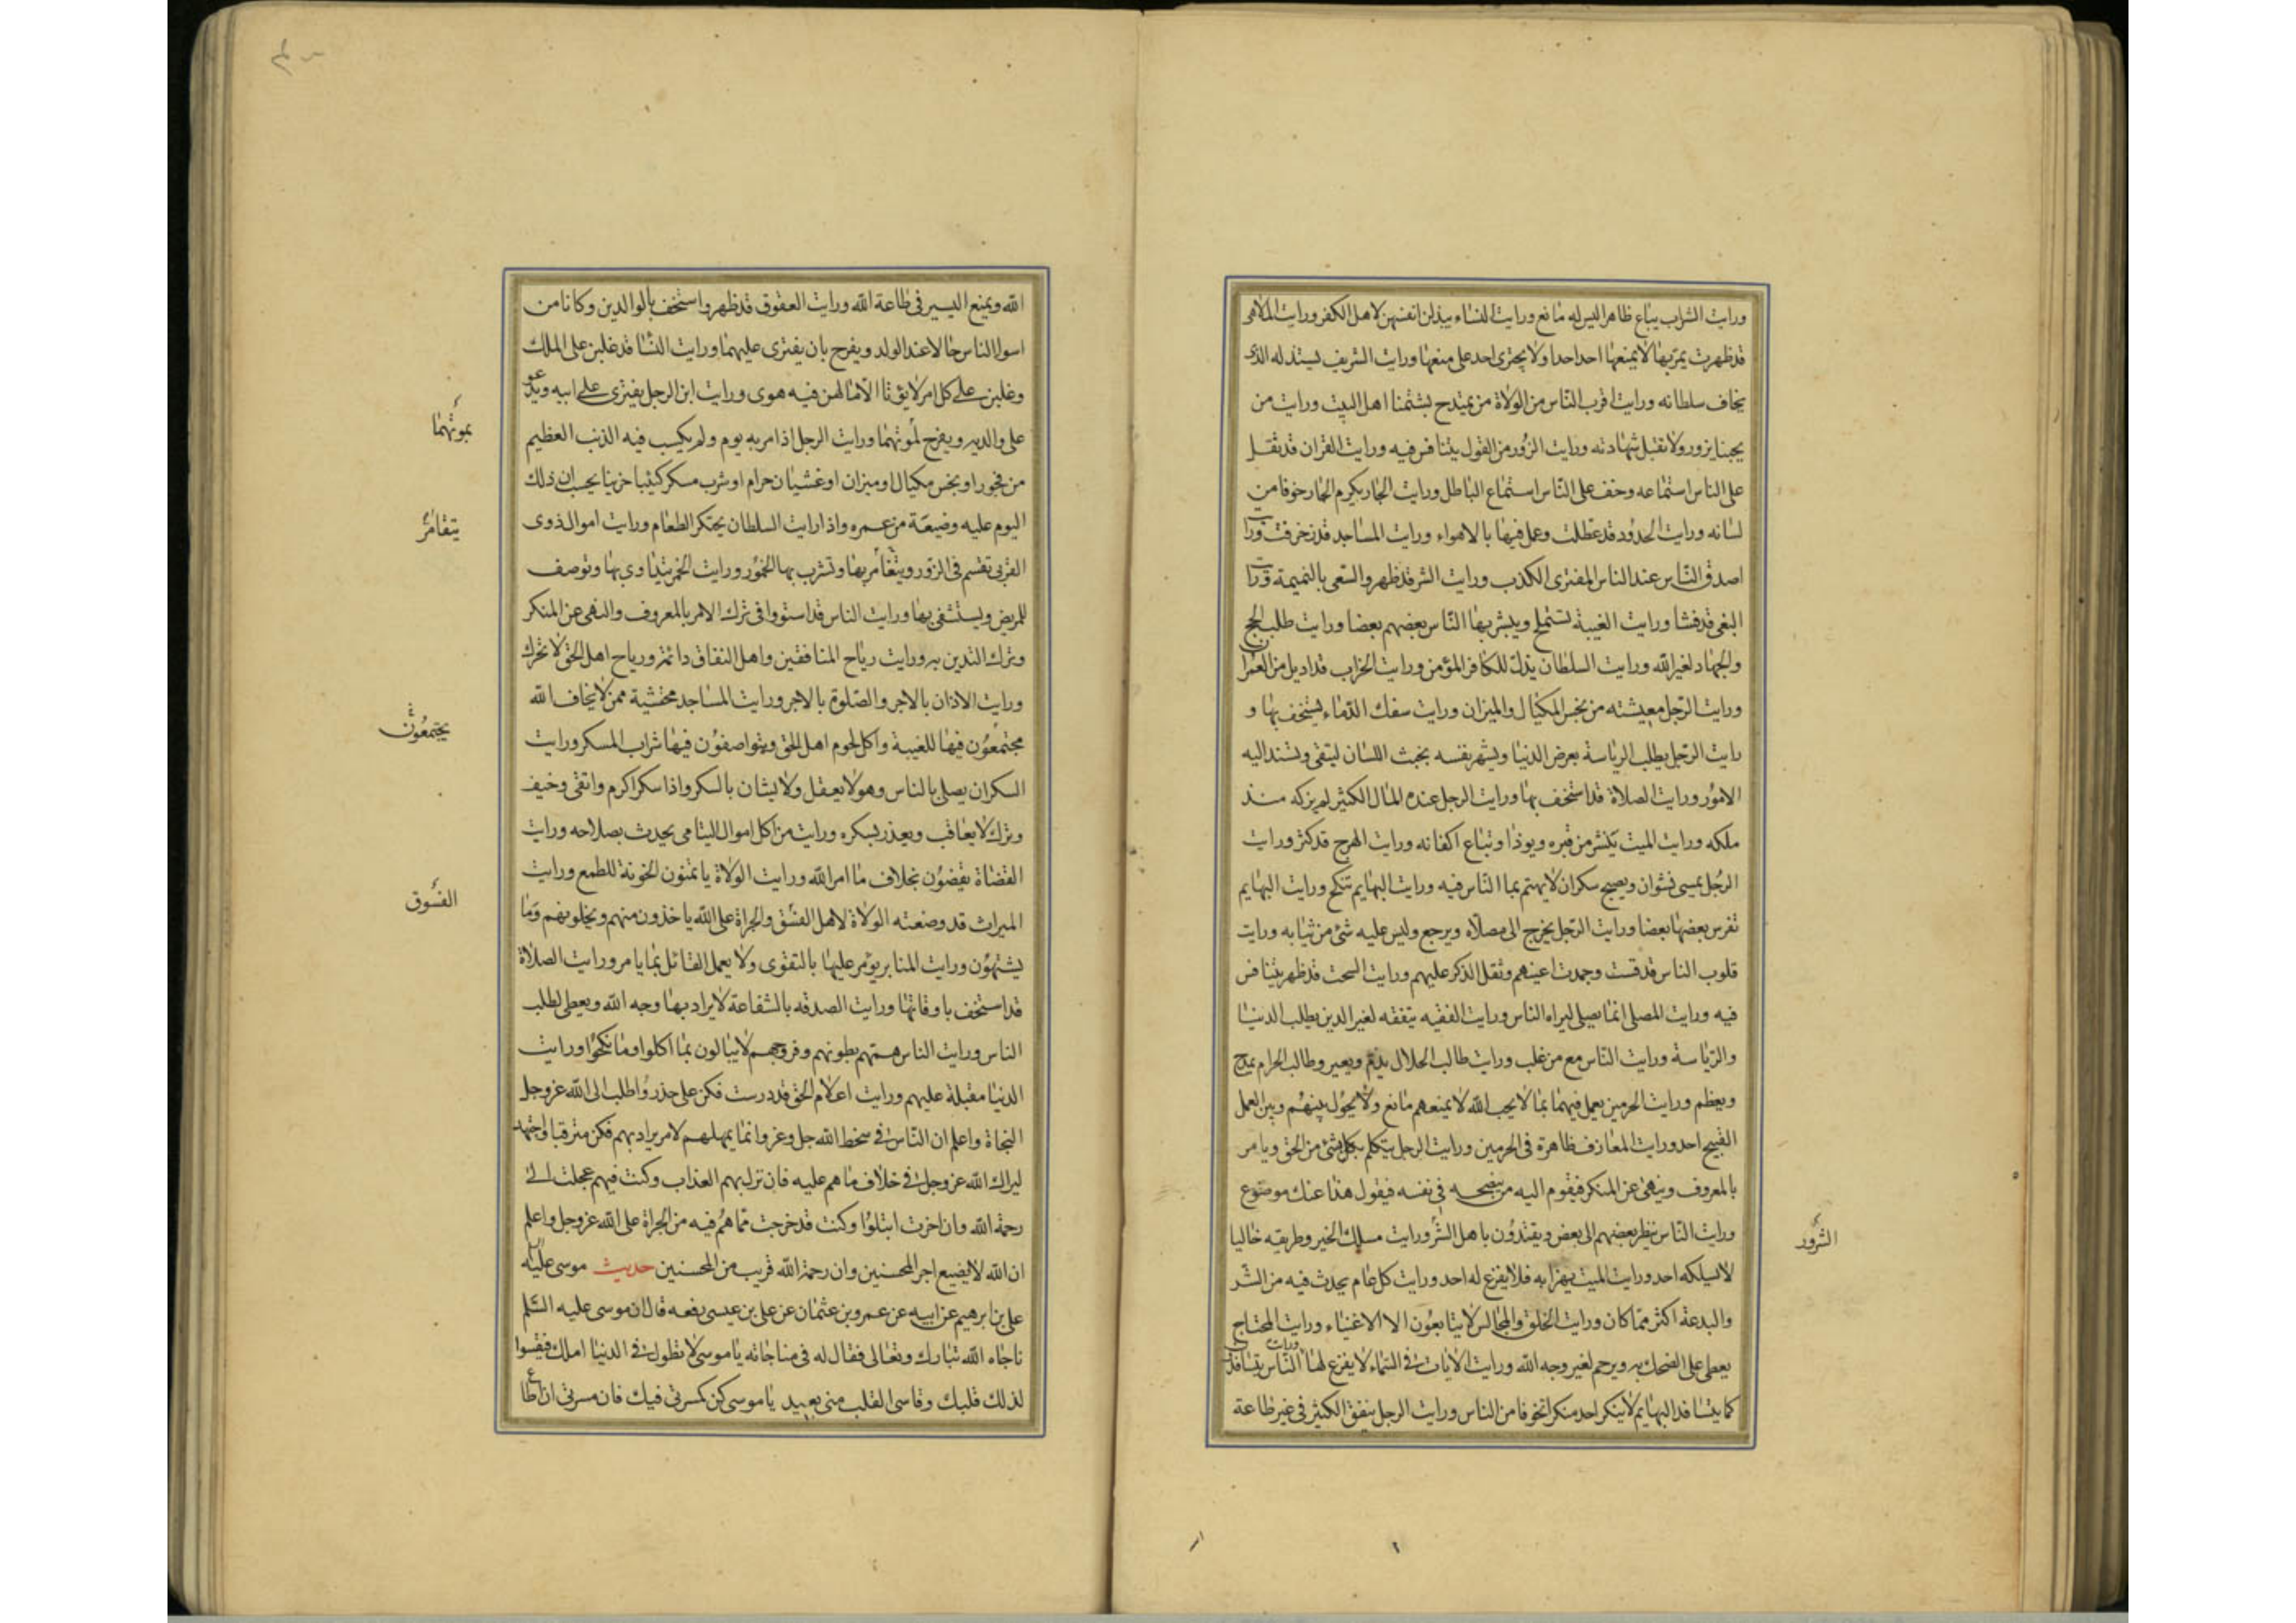 ورايت الشراب يباع ظاهرا ليس له مانع ورايت النساء يبذلن انفسهن لاهل الكفر ورايت الملاهى
قد ظهرت يمر بها لا يمنعها احد احدا ولا يجترى احد على منعها ورايت الشريف يستذله الذى
يخاف سلطانه ورايت اقرب الناس من الولاة من يمتدح بشتمنا اهل البيت ورايت من
يحبنا يزور ولا تقبل شهادته ورايت الزور من القول يتنافس فيه ورايت القران قد ثقل
على الناس استماعه وخف على الناس استماع الباطل ورايت الجار يكرم الجار خوفا من
لسانه ورايت الحدود قد عطلت وعمل فيها بالاهواء ورايت المساجد قد زخرفت ورايت
اصدق الناس عند الناس المفترى الكذب ورايت الشر قد ظهر والسعى بالنميمة ورايت
البغى قد فشا ورايت الغيبة تستملح ويبشر بها الناس بعضهم بعضا ورايت طلب الحج
والجهاد لغير الله ورايت السلطان يذل للكافر المؤمن ورايت الخراب قد اديل من العمران
ورايت الرجل معيشته من بخس المكيال والميزان ورايت سفك الدماء يستخف بها و
رايت الرجل يطلب الرياسة بعرض الدنيا ويشهر نفسه بخبث اللسان ليتقى وتسند اليه
الامور ورايت الصلاة قد استخف بها ورايت الرجل عنده المال الكثير لم يزكه منذ
ملكه ورايت الميت ينشر من قبره ويوذا وتباع اكفانه ورايت الهرج قد كثر ورايت
الرجل يمسى نشوان ويصبح سكران لا يهتم بما الناس فيه ورايت البهايم تنكح ورايت البهايم
تفرس بعضها بعضا ورايت الرجل يخرج الى مصلاه ويرجع وليس عليه شئ من ثيابه ورايت
قلوب الناس قد قست وجمدت اعينهم وثقل الذكر عليهم ورايت السحت قد ظهر يتنافس
فيه ورايت المصلى انما يصلى ليراه الناس ورايت الفقيه يتفقه لغير الدين يطلب الدنيا
والرياسة ورايت الناس مع من غلب ورايت طالب الحلال يذم ويعير وطالب الحرام يمدح
ويعظم ورايت الحرمين يعمل فيهما بما لا يحب الله لا يمنعهم مانع ولا يحول بينهم وبين العمل
القبيح احد ورايت المعازف ظاهرة فى الحرمين ورايت الرجل يتكلم بكل شئ من الحق ويامر
بالمعروف وينهى عن المنكر فيقوم اليه من ينصحه فى نفسه فيقول هذا عنك موضوع
ورايت الناس ينظر بعضهم الى بعض ويقتدون باهل الشر ورايت مسلك الخير وطريقه خاليا
الشرور
لا يسلكه احد ورايت الميت يهزا به فلا يفزع له احد ورايت كل عام يحدث فيه من الشر
والبدعة اكثر مما كان ورايت الخلق والمجالس لا يتابعون الا الاغنياء ورايت المحتاج
يعطى على الضحك به ويرحم لغير وجه الله ورايت الايات فى السماء لا يفزع لها ورايت الناس يتسافدون
كما يتسافد البهايم لا ينكر احد منكرا تخوفا من الناس ورايت الرجل ينفق الكثير فى غير طاعة
الله ويمنع اليسير فى طاعة الله ورايت العقوق قد ظهر واستخف بالوالدين وكانا من
اسوا الناس حالا عند الولد ويفرح بان يفترى عليهما ورايت النسا قد غلبن على الملك
وغلبن على كل امر لا يؤتا الا ما لهن فيه هوى ورايت ابن الرجل يفترى على ابيه ويدعو
على والديه ويفرح لموتهما ورايت الرجل اذا مر به يوم ولم يكسب فيه الذنب العظيم
بموتهما
من فجور او بخس مكيال او ميزان او غشيان حرام او شرب مسكر كئيبا حزينا يحسب ان ذلك
اليوم عليه وضيعة من عمره واذا رايت السلطان يحتكر الطعام ورايت اموال ذوى
يتقامر
القربى تقسم فى الزور ويتقامر بها وتشرب بها الخمور ورايت الخمر يتداوى بها وتوصف
للمريض ويستشفى بها ورايت الناس قد استووا فى ترك الامر بالمعروف والنهى عن المنكر
وترك التدين به ورايت رياح المنافقين واهل النفاق دائمة ورياح اهل الحق لا تحرك
ورايت الاذان بالاجر والصلوة بالاجر ورايت المساجد محتشية ممن لا يخاف الله
مجتمعون فيها للغيبة واكل لحوم اهل الحق ويتواصفون فيها شراب المسكر ورايت
يجتمعون
السكران يصلى بالناس وهو لا يعقل ولا يشان بالسكر واذا سكر اكرم واتقى وخيف
وترك لا يعاقب ويعذر بسكره ورايت من اكل اموال اليتامى يحدث بصلاحه ورايت
القضاة يقضون بخلاف ما امر الله ورايت الولاة ياتمنون الخونة للطمع ورايت
الميراث قد وضعته الولاة لاهل الفسق والجراة على الله ياخذون منهم ويخلونهم وما
الفسوق
يشتهون ورايت المنابر يؤمر عليها بالتقوى ولا يعمل القائل بما يامر ورايت الصلاة
قد استخف باوقاتها ورايت الصدقه بالشفاعة لا يراد بها وجه الله ويعطى لطلب
الناس ورايت الناس همتهم بطونهم وفروجهم لا يبالون بما اكلوا وما نكحوا ورايت
الدنيا مقبلة عليهم ورايت اعلام الحق قد درست فكن على حذر واطلب الى الله عز وجل
النجاة واعلم ان الناس فى سخط الله جل وعز وانما يمهلهم لامر يراد بهم فكن مترقبا واجتهد
ليراك الله عز وجل فى خلاف ما هم عليه فان نزل بهم العذاب وكنت فيهم عجلت الى
رحمة الله وان اخرت ابتلوا وكنت قد خرجت مما هم فيه من الجراة على الله عز وجل واعلم
ان الله لا يضيع اجر المحسنين وان رحمة الله قريب من المحسنين حديث موسى عليه السلام
على بن ابرهيم عن ابيه عن عمرو بن عثمان عن على بن عيسى رفعه قال ان موسى عليه السلم
ناجاه الله تبارك وتعالى فقال له فى مناجاته يا موسى لا تطول فى الدنيا املك فيقسوا
لذلك قلبك وقاسى القلب منى بعيد يا موسى كن كمسرتى فيك فان مسرتى ان اطاع